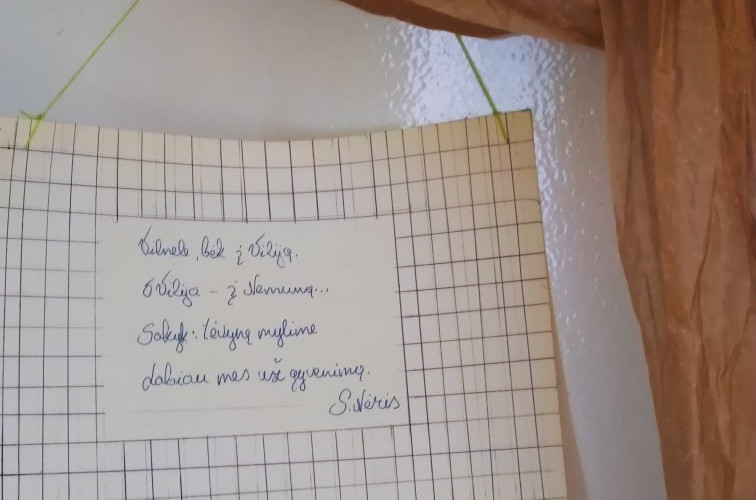 Vilnele, bėk į Viliją.
O Vilija – į Nemuną...
Sakyk: tėvynę mylime
labiau mes už gyvenimą.
S. Nėris